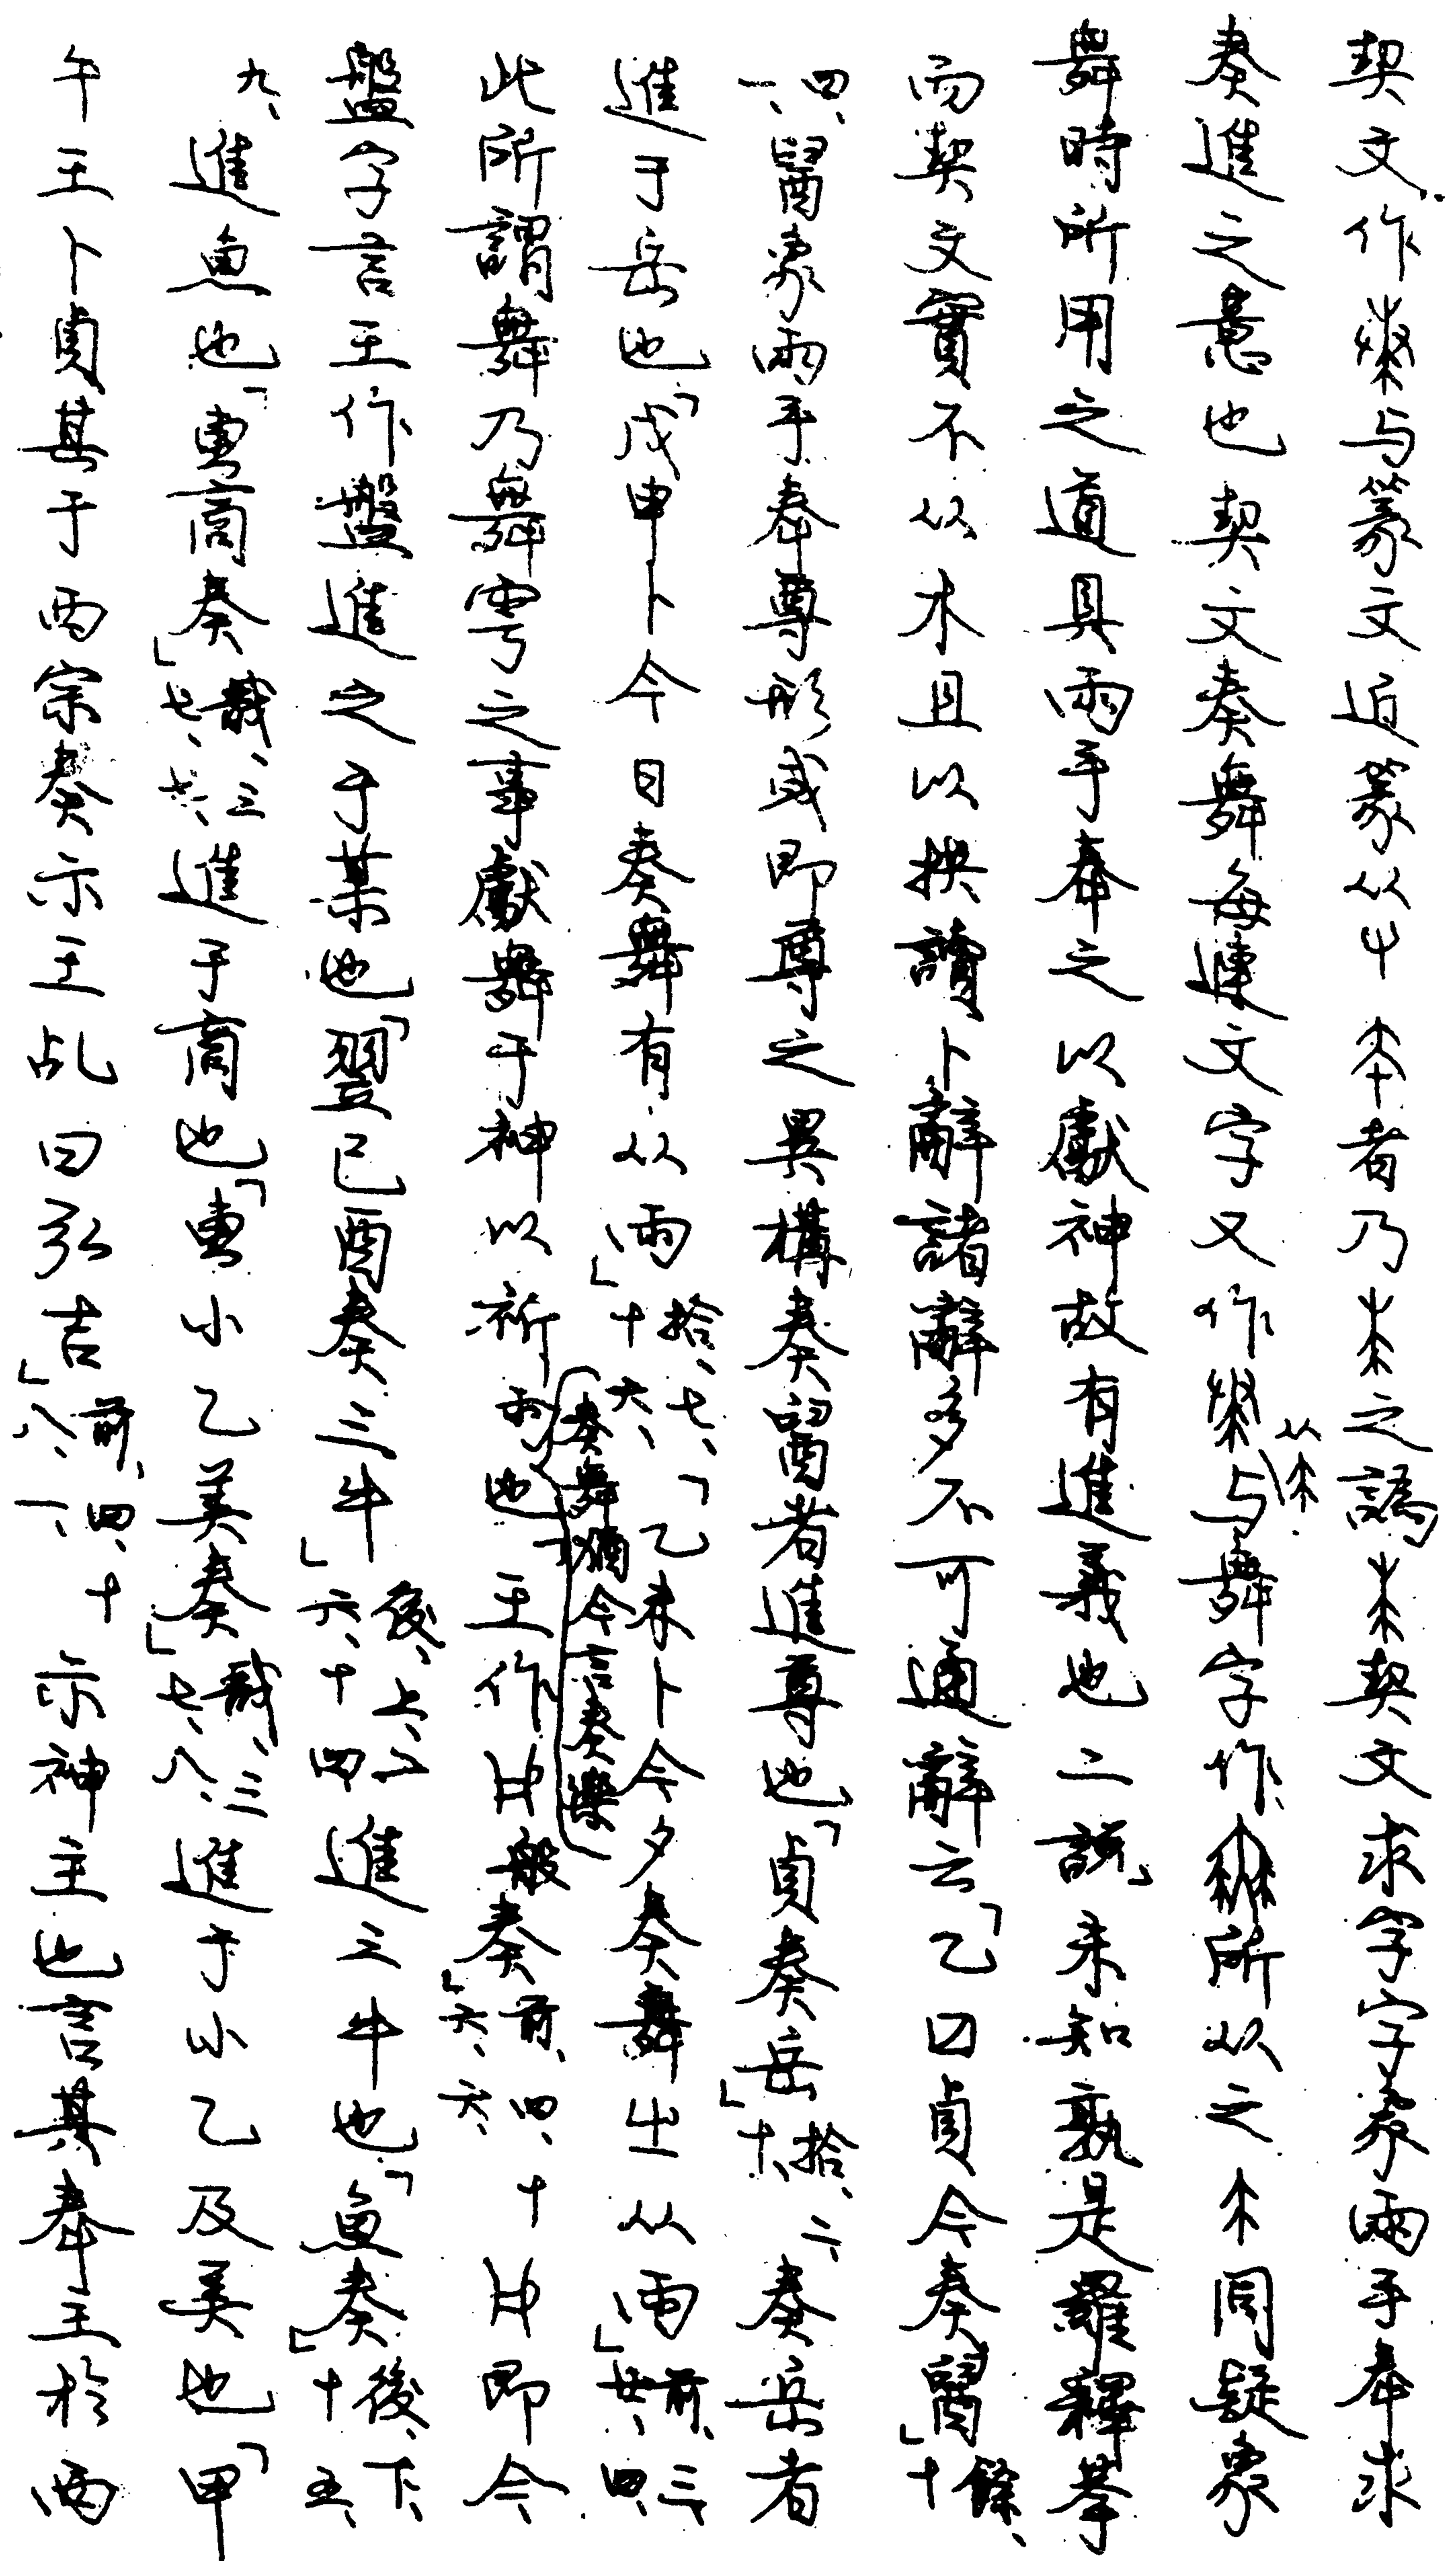 契文作与篆文近篆从屮夲者乃之譌契文求字字象兩手奉求
奏進之意也契文奏舞每連文字又作从与舞字作所从之同疑象
舞時所用之道具兩手奉之以獻神故有進義也二說未知孰是羅釋拲
而契文實不从木且以拲讀卜辭諸辭多不可通辭云「乙囗貞今奏」餘、十
四、一、象兩手奉尊形或即尊之異構奏者進尊也「貞奏岳」拾、二、十、奏岳者
進于岳也「戊申卜今日奏舞有从雨」拾、七、十六、「乙未卜今夕奏舞㞢从雨」前、三、廿、四、
此所謂舞乃舞雩之事獻舞于神以祈雨也（奏舞猶今言奏樂）「王作般奏」前、四、十六、六、即今
盤字言王作盤進之于某也「翌已酉奏三牛」後、上、廿六、十四進三牛也「魚奏」後、下、十五、
九、進魚也「叀商奏」戩、三七、七、進于商也「叀小乙美奏」戩、三七、八、進于小乙及美也「甲
午王卜貞其于西宗奏示王占曰弘吉」前、四、十八、一、示神主也言其奉主於西